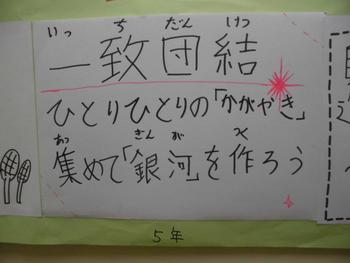 いっ ち だん けつ
一致団結
ひとりひとりの「かがやき」
あつ ぎん が つく
集めて「銀河」を作ろう
5年